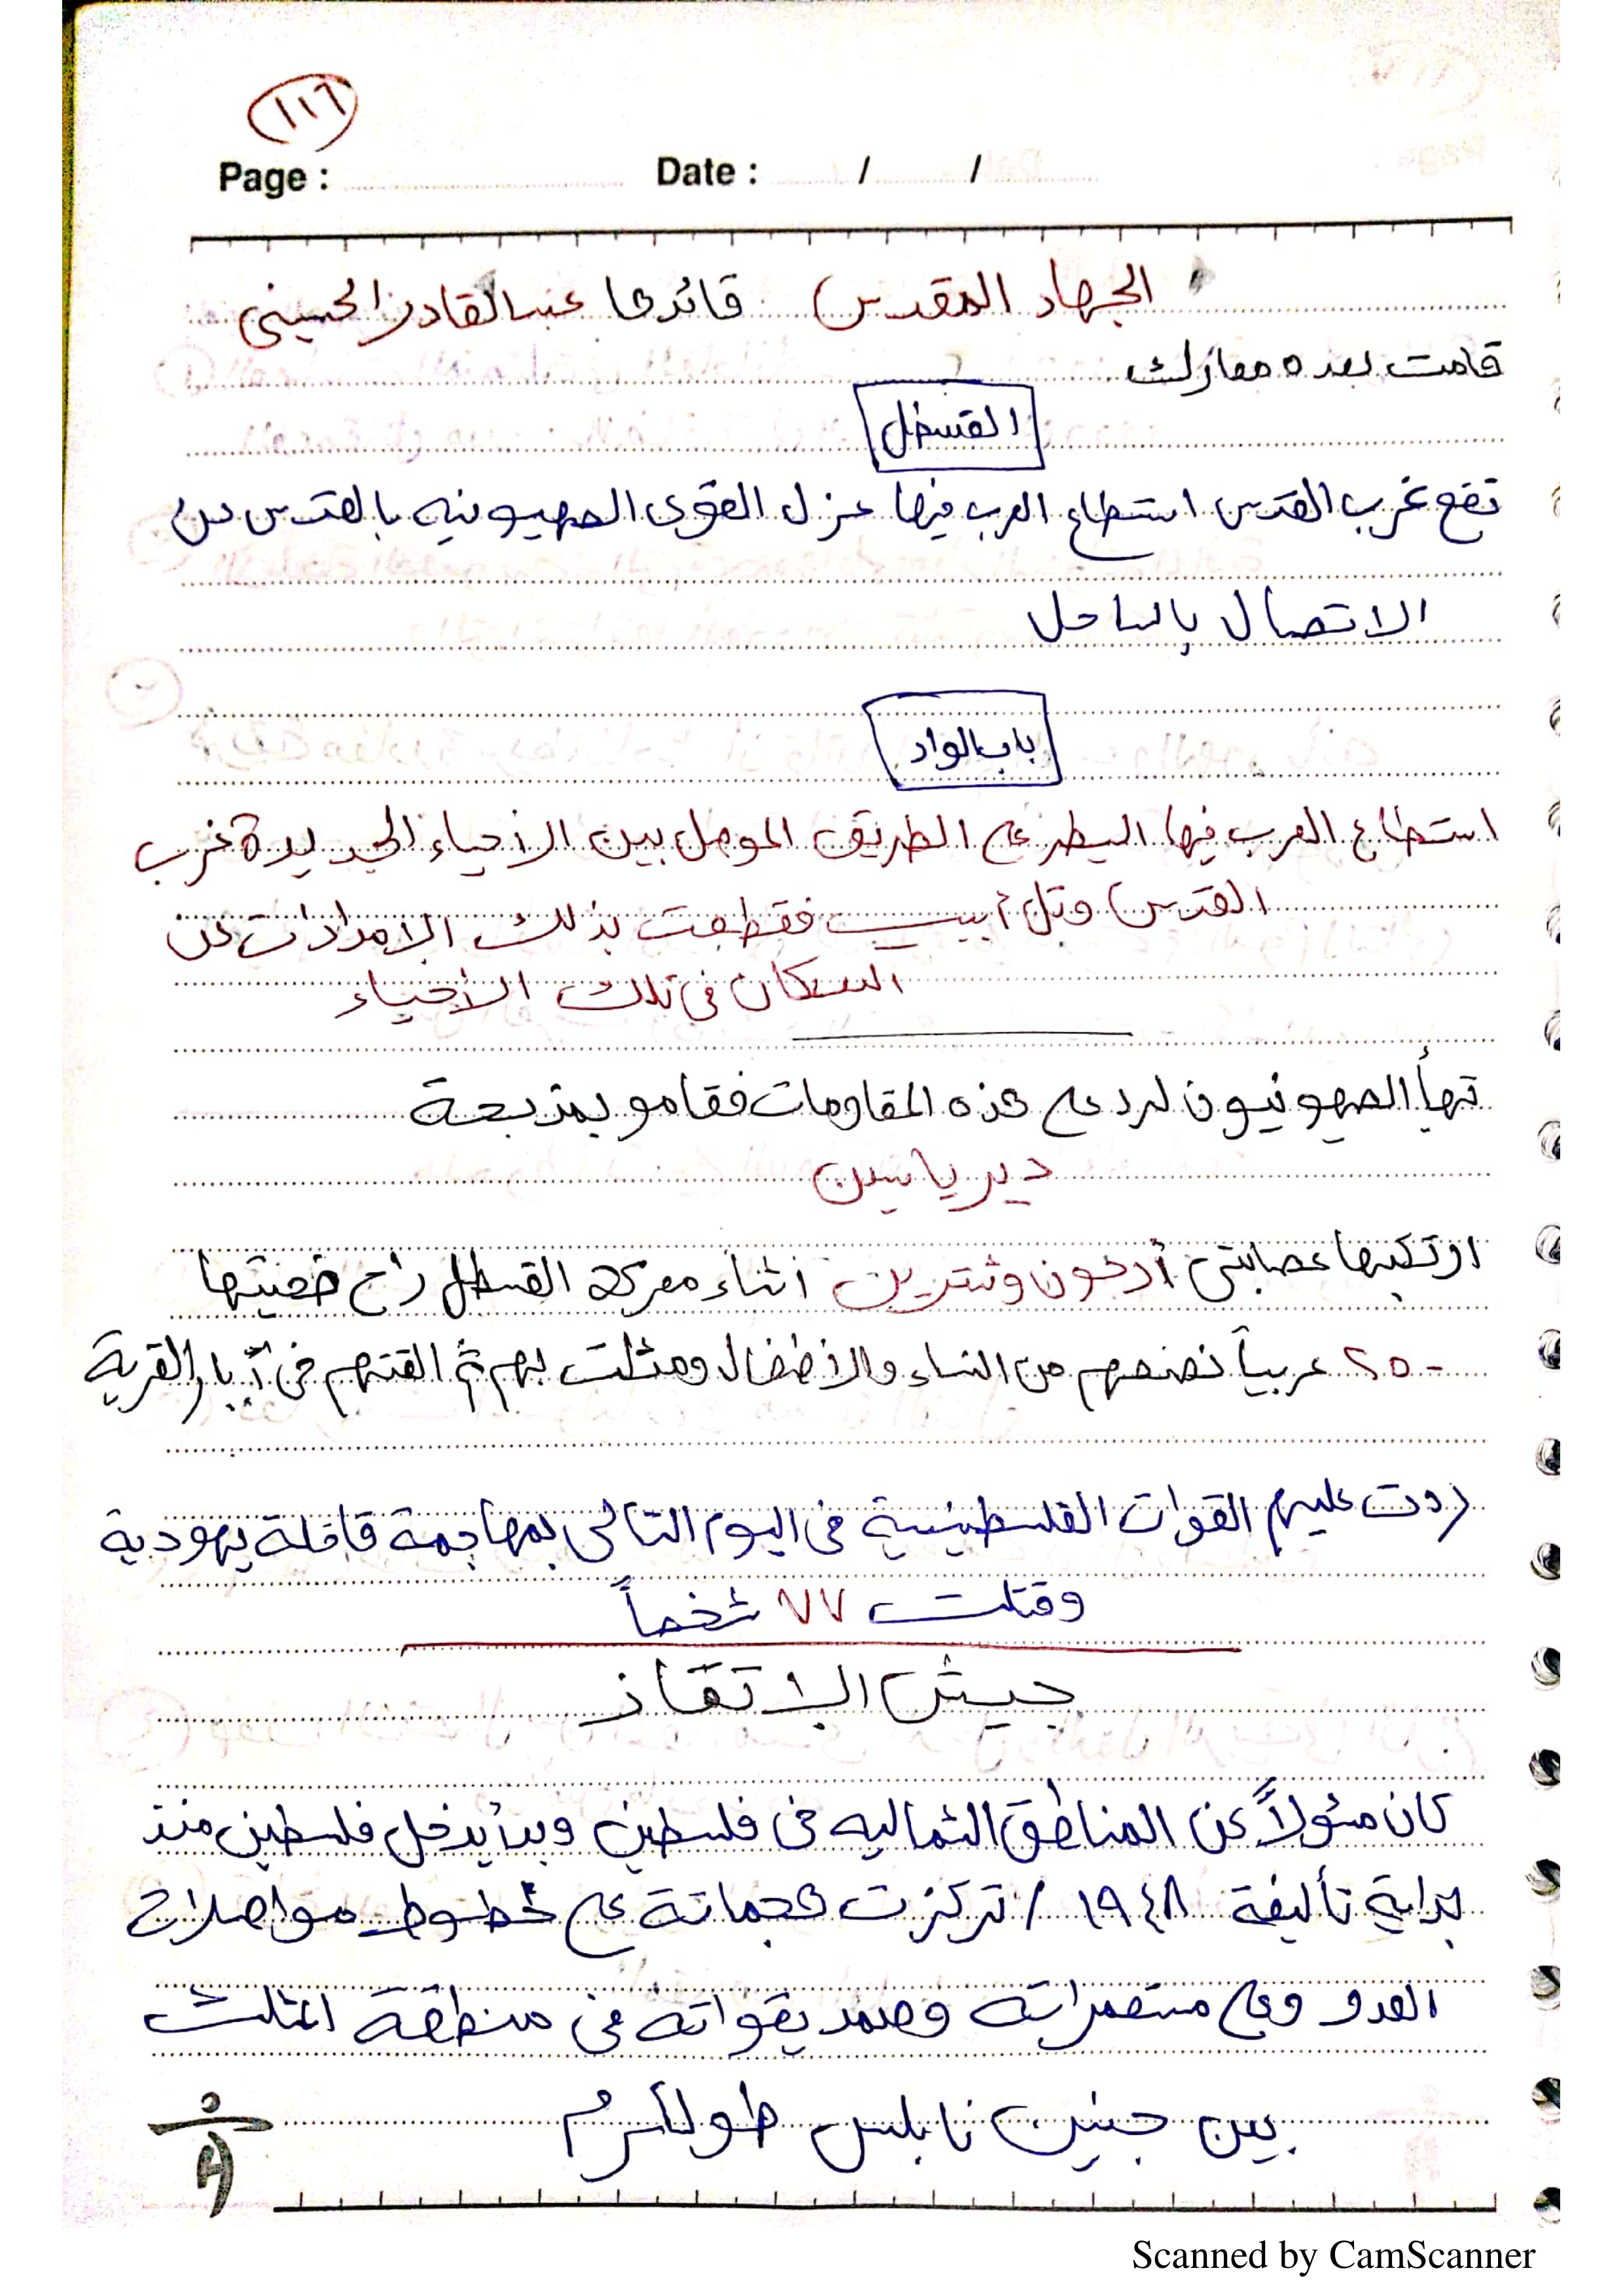 ١١٦
Page : Date : / /
الجهاد المقدس قائدها عبد القادر الحسيني
قامت بعده معارك
القسطل
تقع غرب القدس استطاع العرب فيها عزل القوى الصهيونيه بالقدس من
الاتصال بالساحل
باب الواد
استطاع العرب فيها السيطر على الطريق الموصل بين الأحياء الجديدة غرب
القدس وتل أبيب فقطعت بذلك الإمدادات عن
السكان في تلك الأحياء
تهيأ الصهيونيون لرد على هذه المقاومات فقامو بمذبحة
دير ياسين
ارتكبها عصابتي أرغون وشترين أثناء معركه القسطل راح ضحيتها
٢٥٠ عربياً نصفهم من النساء والأطفال ومثلت بهم ثم القتهم في آبار القرية
ردت عليهم القوات الفلسطينية في اليوم التالي بمهاجمة قافلة يهودية
وقتلت ٧٧ شخصاً
جيش الإنقاذ
كان مسئولاً عن المناطق الشماليه في فلسطين وبدأ يدخل فلسطين منذ
بداية تأليفة ١٩٤٨ / تركزت هجماتة على خطوط مواصلات
العدو وعلى مستعمراته وصمد بقواته في منطقة المثلث
بين جنين نابلس طولكرم
Scanned by CamScanner